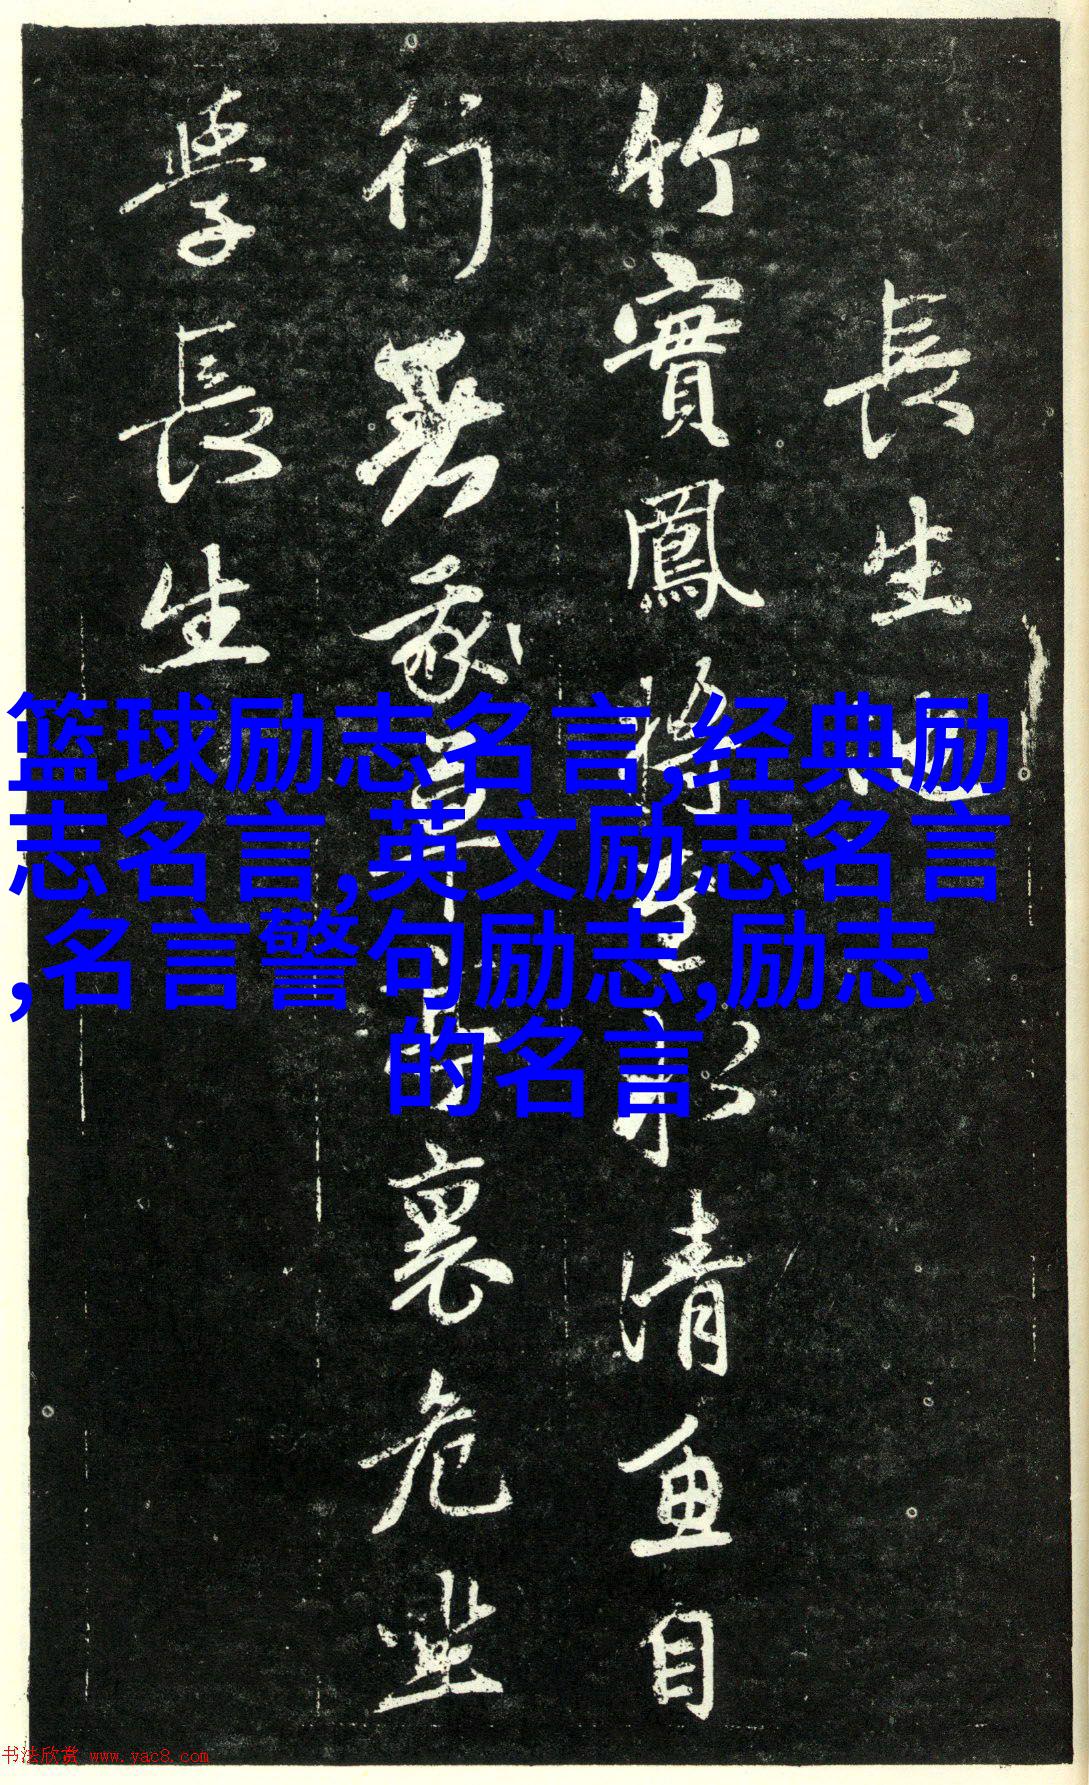 長生
竹實鳳將水清魚自
行草裏危坐
學長生
篮球励志名言,经典励
志名言,英文励志名言
,名言警句励志,励志
的名言
书法欣赏 www.yac8.com